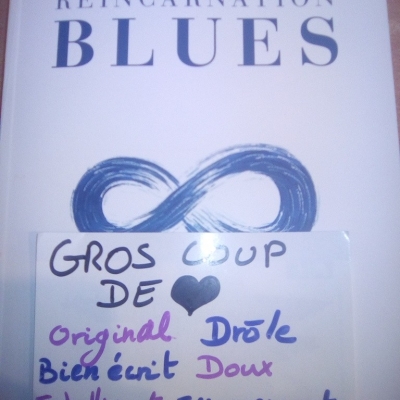 REINCARNATION
BLUES
GROS COUP
DE ❤
Original Drôle
Bien écrit Doux